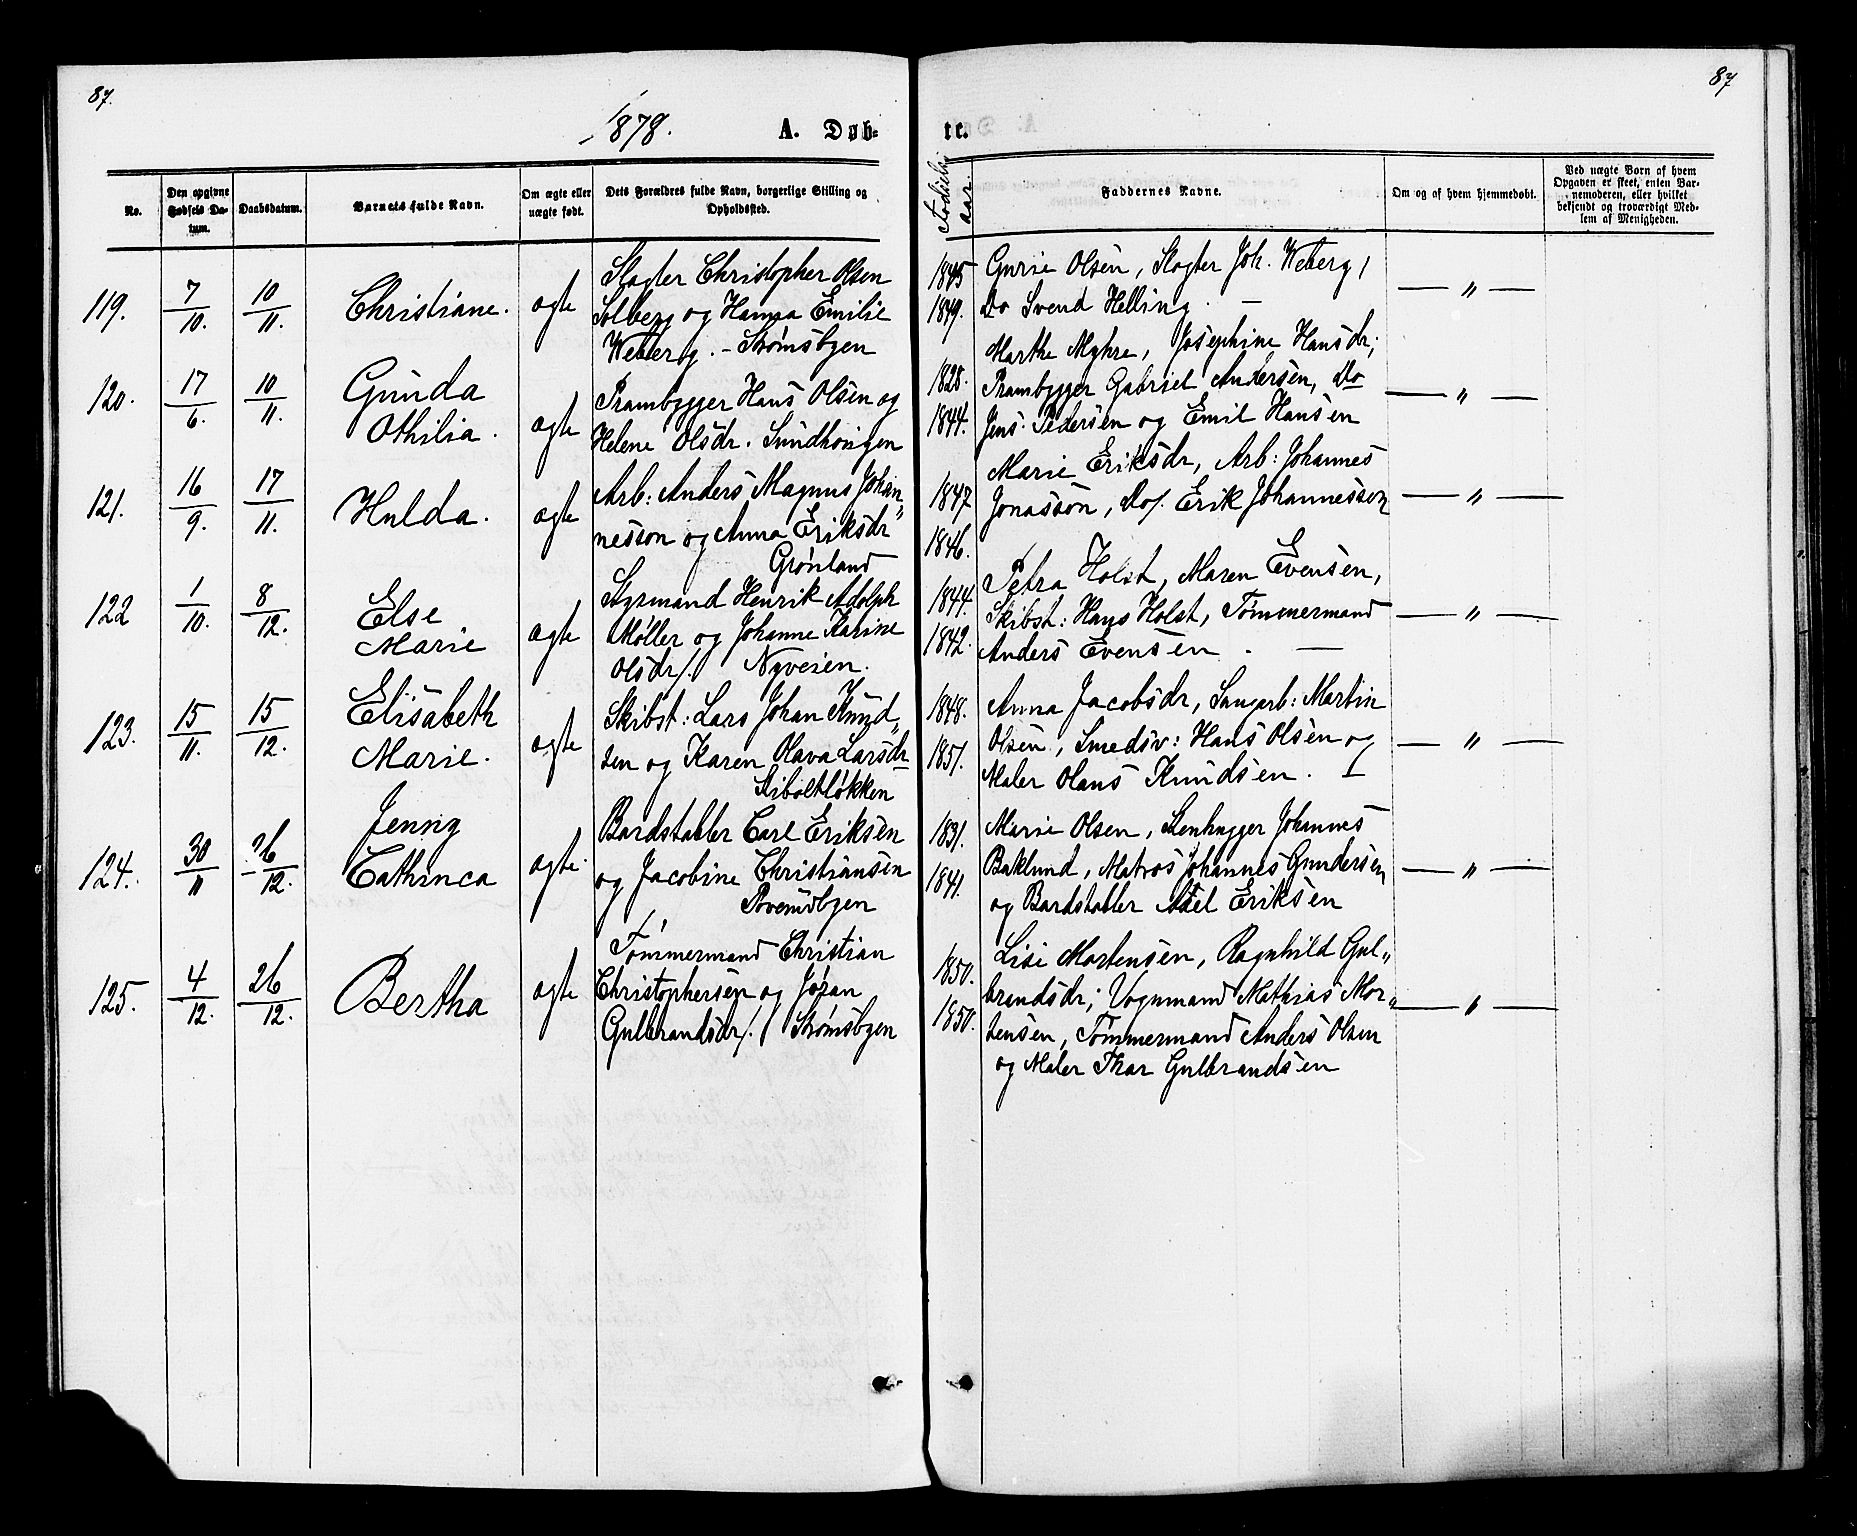 87.
87
1878.
A. Døb-
te.
No.
Den opgivne Fødsels Datum.
Daabsdatum.
Barnets fulde Navn.
Om ægte eller uægte født.
Dets Forældres fulde Navn, borgerlige Stilling og Opholdssted.
Fødsels aar.
Faddernes Navne.
Om og af hvem hjemmedøbt.
Ved uægte Børn af hvem Opgaven er skeet, enten Barnemoderen, eller hvilket bekjendt og troværdigt Medlem af Menigheden.
119. 7/10. 10/11. Christiane. ægte
Slagter Christopher Olsen
Solberg og Hanna Emilie
Weberg. - Strømsbyen
1845
1849.
Gurie Olsen, Slagter Joh. Weberg,
Do Svend Helling. —
— " —
120. 17/6. 10/11. Gunda
Othilia. ægte
Prambygger Hans Olsen og
Helene Olsdr. Sundhougen
1828.
1844.
Marthe Myhre, Josephine Hansdr;
Prambygger Gabriel Andersen, Do
Jens Pedersen og Emil Hansen
— " —
121. 16/9. 17/11. Hulda. ægte
Arb: Anders Magnus Johan„
nesson og Anna Eriksdr
Grønland
1847
1846.
Marie Eriksdr, Arb: Johannes
Jonasson, Do/. Erik Johannesson
— " —
122 1/10. 8/12. Else
Marie ægte
Styrmand Henrik Adolph
Møller og Johanne Karine
Olsdr/. Nyveien.
1844.
1842.
Petra Holst, Maren Evensen,
Skibst: Hans Holst, Tømmermand
Anders Evensen. —
— " —
123. 15/11. 15/12. Elisabeth
Marie. ægte
Skibst: Lars Johan Knud„
sen og Karen Olava Larsdr
Siboltløkken
1848.
1851.
Anna Jacobsdr, Saugarb: Martin
Olsen, Smedsv: Hans Olsen og
Maler Olaus Knudsen. —
— " —
124. 30/11 26/12. Jenny
Cathinca ægte
Bordstabler Carl Eriksen
og Jacobine Christiansen
Prvemsbyen
1831.
1841.
Marie Olsen, Stenhugger Johannes
Baklund, Matros Johannes Gundersen
og Bordstabler Axel Eriksen
— " —
125. 4/12. 26/12. Bertha ægte
Tømmermand Christian
Christophersen og Jøran
Gulbrandsdr/. Strømsbyen
1850.
1850.
Lisi Mortensen, Ragnhild Gul„
brandsdr; Vognmand Mathias Mor„
tensen, Tømmermand Anders Olsen
og Maler Ihar Gulbrandsen
— " —